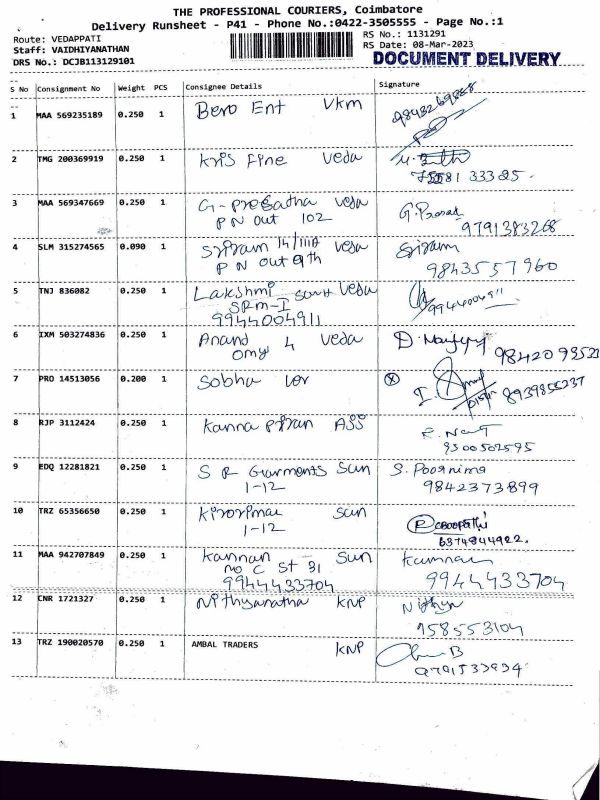 THE PROFESSIONAL COURIERS, Coimbatore
Delivery Runsheet - P41 - Phone No.:0422-3505555 - Page No.:1
Route: VEDAPPATI
RS No.: 1131291
Staff: VAIDHIYANATHAN
RS Date: 08-Mar-2023
DRS No.: DCJB113129101
DOCUMENT DELIVERY
S No Consignment No Weight PCS Consignee Details Signature
1 MAA 569235189 0.250 1 Bero Ent Vkm
2 TMG 200369919 0.250 1 Kris Fine Veda
3 MAA 569347669 0.250 1 Veda G. Prasat
PN out 102 9791383268
4 SLM 315274565 0.090 1 Sriram Veda Sriram
PN out 9th 9843557960
5 TNJ 836082 0.250 1 Lakshmi South Veda
SRM-I
9944004911 9944004911
6 IXM 503274836 0.250 1 Anand 4 Veda
7 PRO 14513056 0.200 1 Sobha
8939855237
8 RJP 3112424 0.250 1 Kanna Piran ASS
9500502595
9 EDQ 12281821 0.250 1 S R Garments Sun S. Poornima
1-12 9842373899
10 TRZ 65356650 0.250 1 Sun
1-12 6374844922.
11 MAA 942707849 0.250 1 Kannan Sun Kannan
No C St 31
9944433704 9944433704
12 CNR 1721327 0.250 1 KNP Nithya
13 TRZ 190020570 0.250 1 AMBAL TRADERS KNP